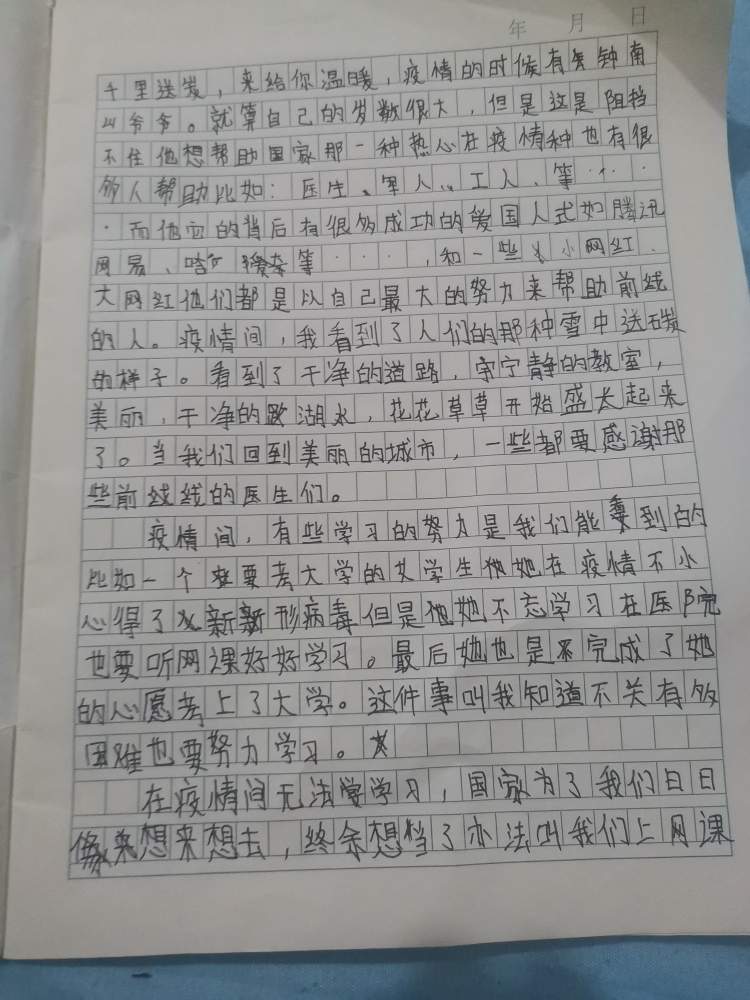 年 月 日
千里送炭，来给你温暖，疫情的时候有关钟南
山爷爷。就算自己的岁数很大，但是这是阻挡
不住他想帮助国家那一种热心在疫情种也有很
多人帮助比如：医生、军人、工人、等···
·而他们的背后有很多成功的爱国人式如腾讯
网易、等····，和一些小网红.
大网红他们都是以自己最大的努力来帮助前线
的人。疫情间，我看到了人们的那种雪中送碳
的样子。看到了干净的道路，宁静的教室，
美丽，干净的湖水，花花草草开始盛长起来
了。当我们回到美丽的城市，一些都要感谢那
些前线线的医生们。
疫情间，有些学习的努力是我们能要到的
比如一个要考大学的女学生她在疫情不小
心得了新形病毒但是她不忘学习在医院
也要听网课好好学习。最后她也是完成了她
的心愿考上了大学。这件事叫我知道不关有多
困难也要努力学习。
在疫情间无法学习，国家为了我们日日
想来想去，终余想档了办法叫我们上网课